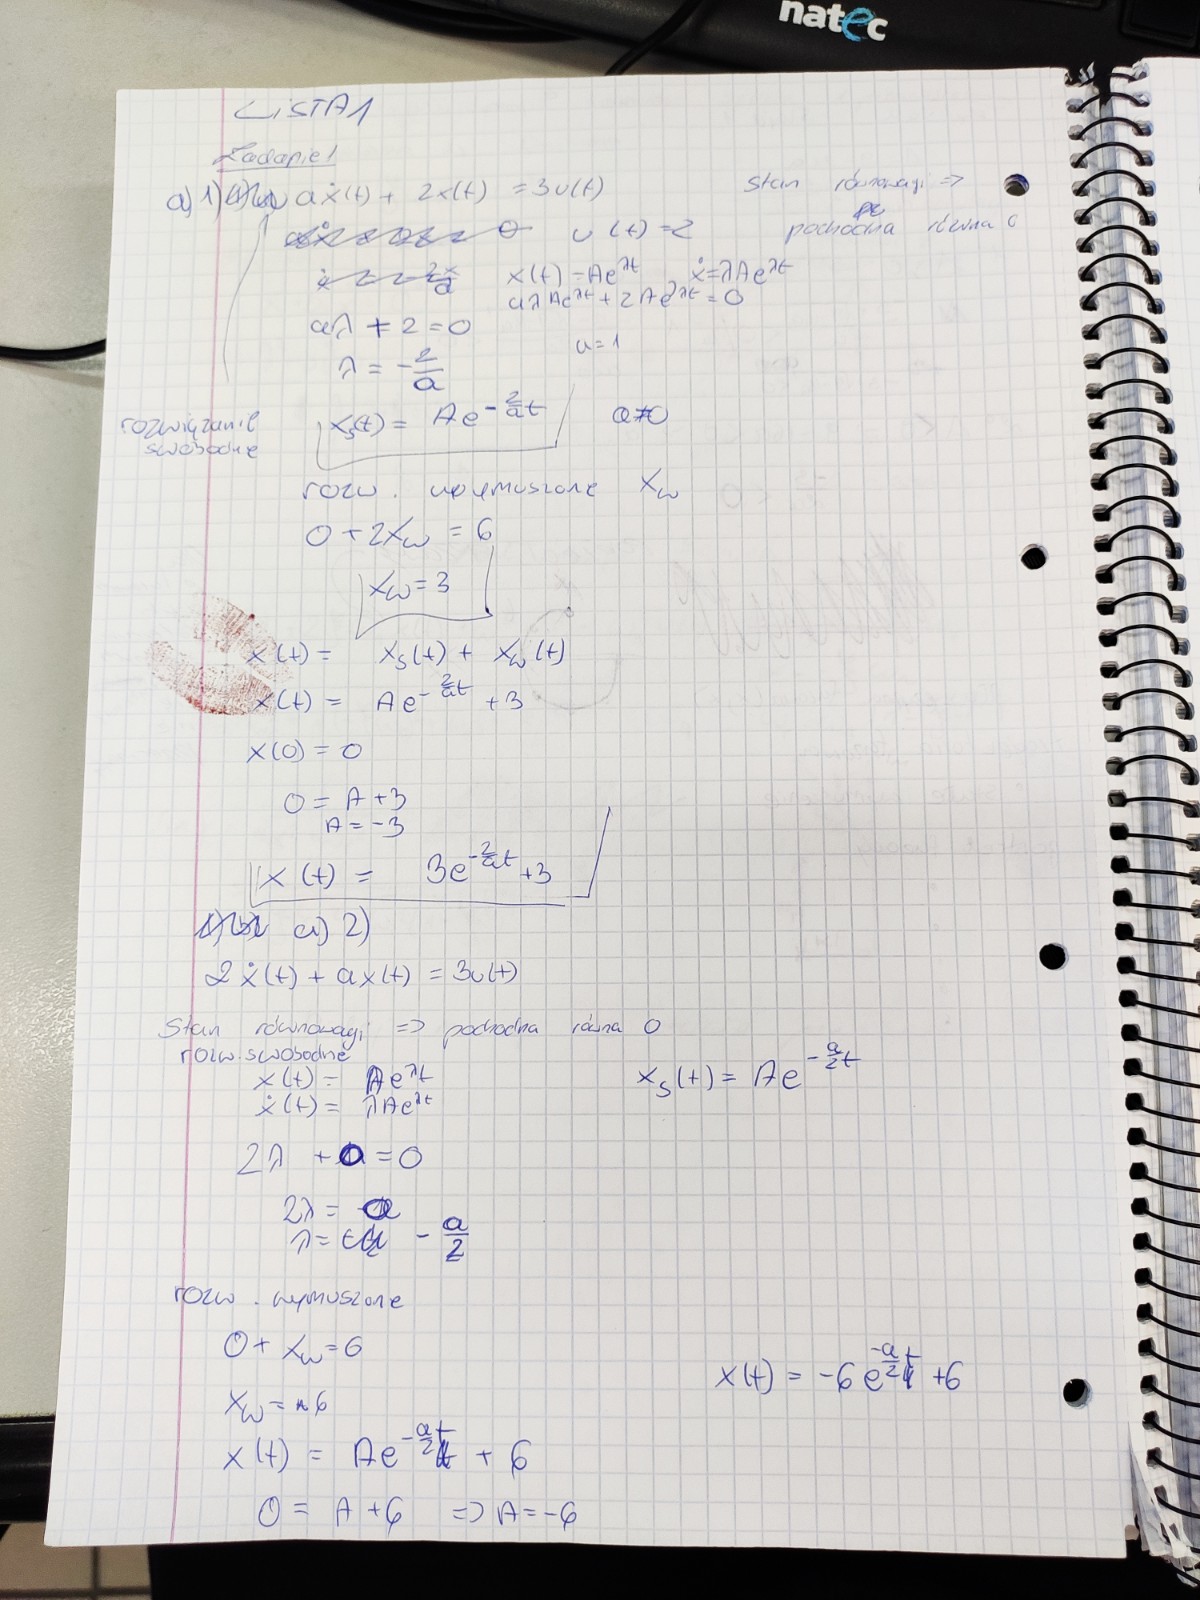 natec
LISTA1
Zadanie1
a) 1) aẋ(t) + 2x(t) = 3u(t) stan równowagi =>
u(t) = 2 pochodna równa 0
x(t) = Ae^λt ẋ = λAe^λt
aλAe^λt + 2Ae^λt = 0
aλ + 2 = 0
a = 1
λ = -2/a
rozwiązanie xₛ(t) = Ae^-2/at a≠0
swobodne
rozw. wymuszone x_w
0 + 2x_w = 6
x_w = 3
x(t) = xₛ(t) + x_w(t)
x(t) = Ae^-2/at + 3
x(0) = 0
0 = A + 3
A = -3
x(t) = 3e^-2/at + 3
a) 2)
2ẋ(t) + ax(t) = 3u(t)
Stan równowagi => pochodna równa 0
rozw. swobodne
x(t) = Ae^λt xₛ(t) = Ae^-a/2t
ẋ(t) = λAe^λt
2λ + a = 0
2λ = -a
λ = - a/2
rozw. wymuszone
0 + x_w = 6
x(t) = -6e^-a/2t + 6
x_w = 6
x(t) = Ae^-a/2t + 6
0 = A + 6 => A = -6